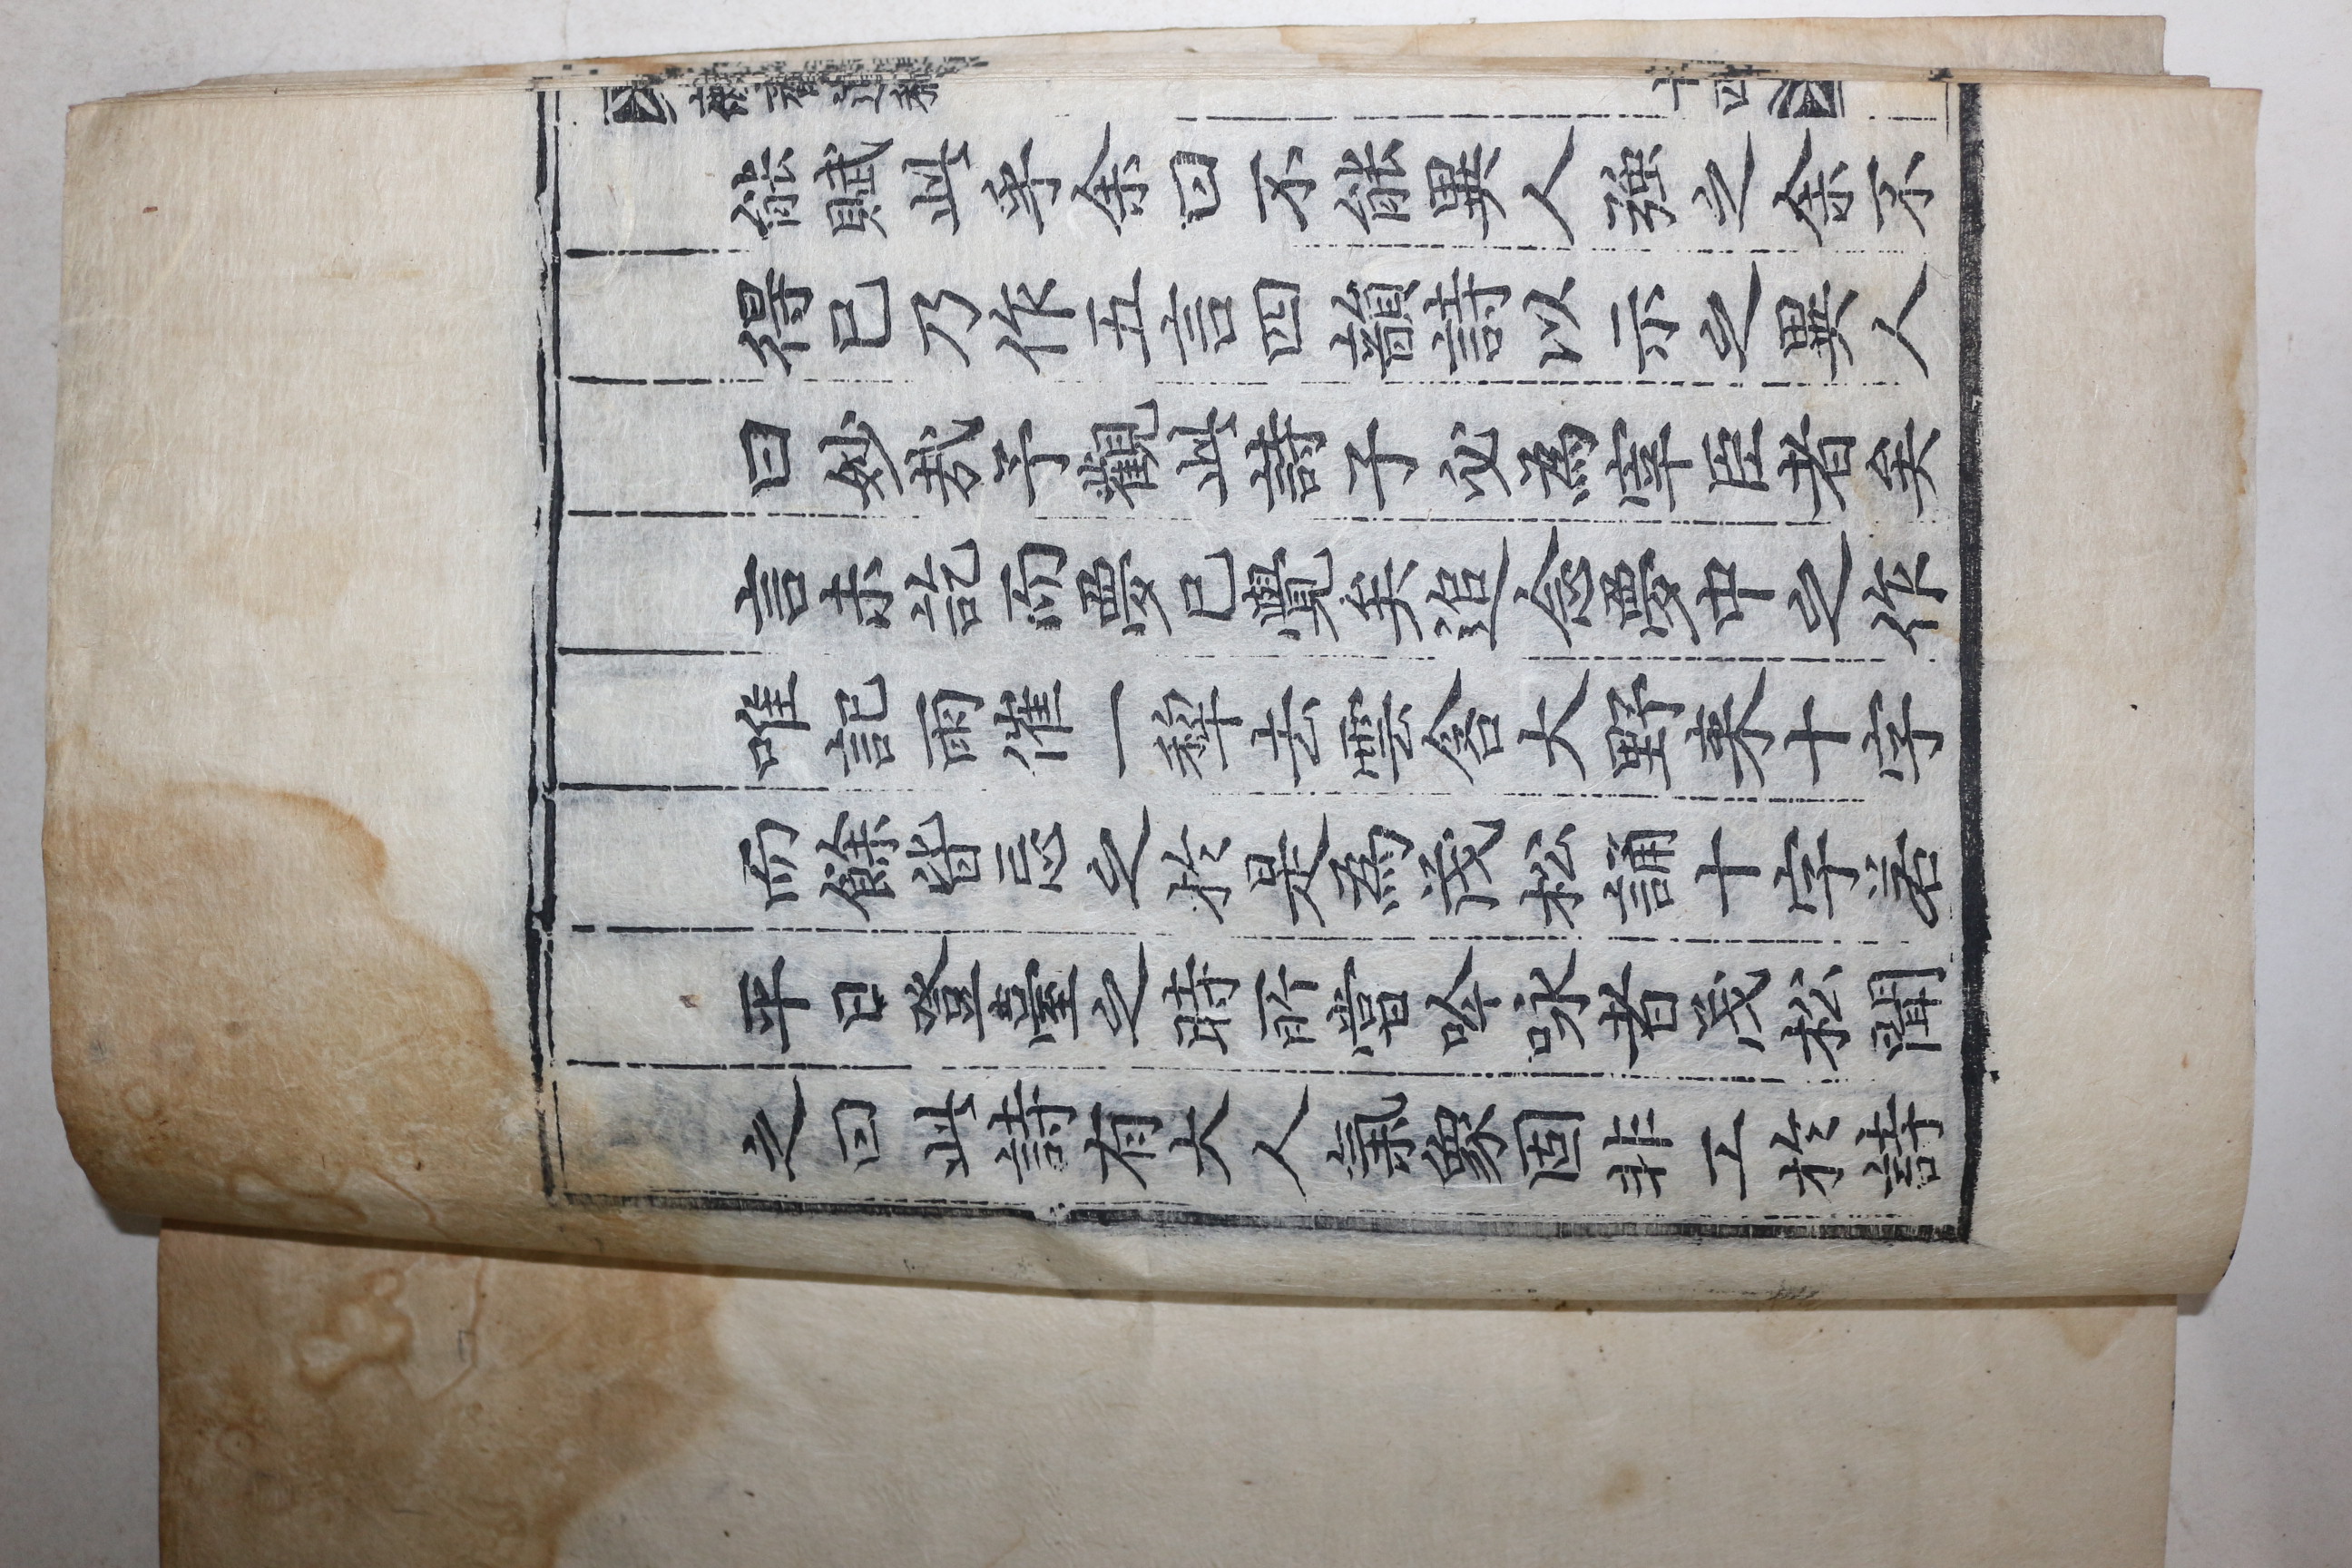 能賦此乎余曰不能異人强之余不
得已乃作五言四韻詩以示之異人
曰妙哉予觀此詩子必爲宰臣者矣
言未訖而夢已覺矣追念夢中之作
唯記雨催一犂去雲含大野來十字
而餘皆忘之於是爲茂松誦十字若
平日登臺之時所嘗吟咏者茂松聞
之曰此詩有大人氣象固非工於詩